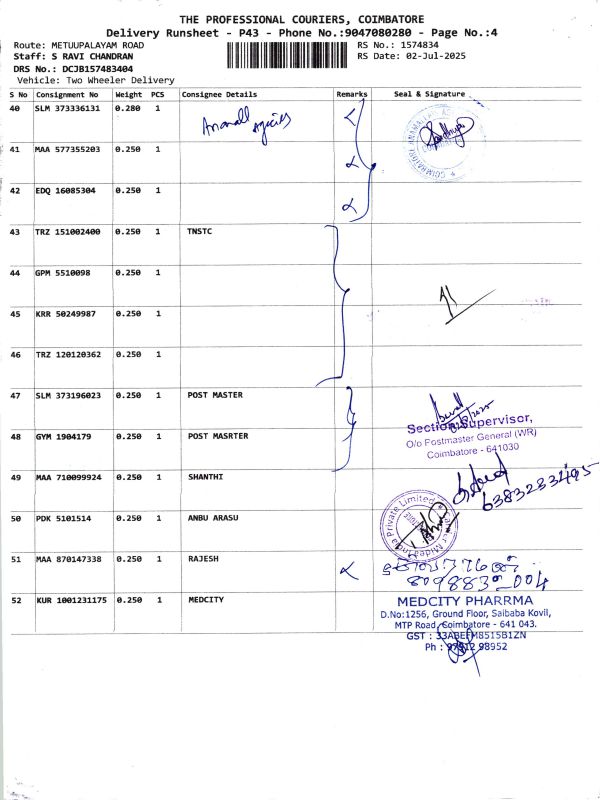 THE PROFESSIONAL COURIERS, COIMBATORE
Delivery Runsheet - P43 - Phone No.:9047080280 - Page No.:4
Route: METUUPALAYAM ROAD RS No.: 1574834
Staff: S RAVI CHANDRAN RS Date: 02-Jul-2025
DRS No.: DCJB157483404
Vehicle: Two Wheeler Delivery
S No Consignment No Weight PCS Consignee Details Remarks Seal & Signature
40 SLM 373336131 0.280 1
41 MAA 577355203 0.250 1
42 EDQ 16085304 0.250 1
43 TRZ 151002400 0.250 1 TNSTC
44 GPM 5510098 0.250 1
45 KRR 50249987 0.250 1
46 TRZ 120120362 0.250 1
47 SLM 373196023 0.250 1 POST MASTER
Section Supervisor,
48 GYM 1904179 0.250 1 POST MASRTER
O/o Postmaster General (WR)
Coimbatore - 641030
49 MAA 710099924 0.250 1 SHANTHI
6383233495
50 PDK 5101514 0.250 1 ANBU ARASU
51 MAA 870147338 0.250 1 RAJESH
52 KUR 1001231175 0.250 1 MEDCITY
MEDCITY PHARRMA
D.No:1256, Ground Floor, Saibaba Kovil,
MTP Road, Coimbatore - 641 043.
GST : 33ABEFM8515B1ZN
Ph : 98952